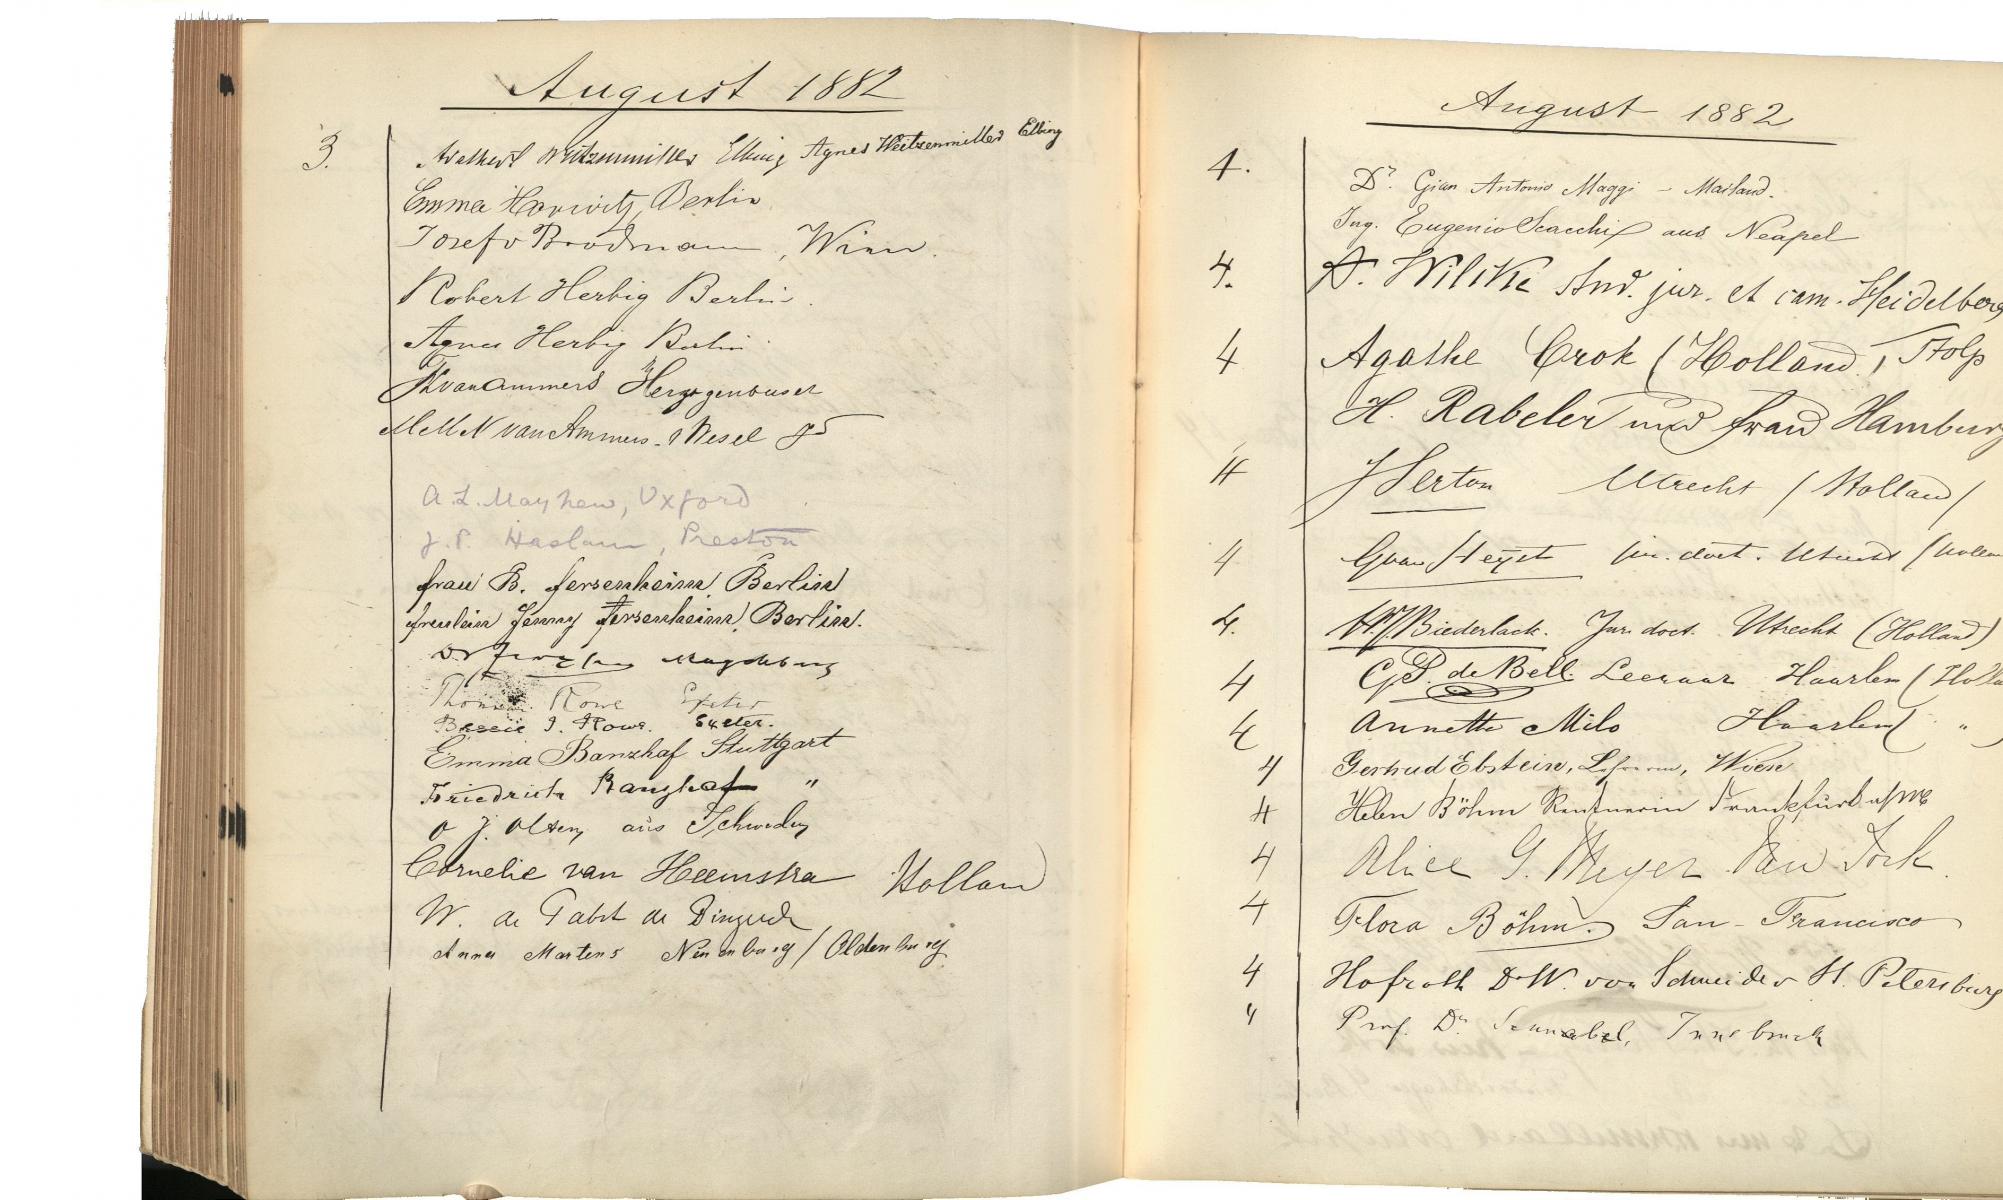 August 1882
3.
Weitzenmiller Elbing Agnes Weitzenmiller Elbing
Emma Horwitz, Berlin
Josef Brodmann, Wien.
Robert Herbig Berlin.
Agnes Herbig Berlin.
van Ammers Herzogenbusch
van Ammers - Wesel
A. L. Mayhew, Oxford
J. P. Haslam, Preston
Frau B. Fersenheim, Berlin
Fräulein Jenny Fersenheim, Berlin.
Dr Magdeburg
Thomas Rowe Exeter
Bessie J. Rowe. Exeter.
Emma Banzhaf Stuttgart
Friedrich Banzhaf "
O J. Olsen aus Schweden
Cornelie van Heemstra Holland
W. de Pabst de
Anna Martens Neuenburg / Oldenburg
August 1882
4. Dr. Gian Antonio Maggi - Mailand.
Ing. Eugenio Scacchi aus Neapel
4. A. Wilcke stud. jur. et cam. Heidelberg
4 Agathe Crok (Holland)
H. Rabeler und Frau Hamburg
4 J Serton Utrecht / Holland /
4 G van Heyst jur. doct. Utrecht
4. Biederlack. Jur. doct. Utrecht (Holland)
4 G. P. de Bell. Leeraar Haarlem
4 Annette Milo Haarlem ( " )
4 Gertrud Ebstein, Wien
4 Helen Böhm Rentnerin Frankfurt a/M
4 Alice G. Meyer New York
4 Flora Böhm. San-Francisco
4 Hofrath Dr W. von Schneider St. Petersburg
" Prof. Dr. Innsbruck